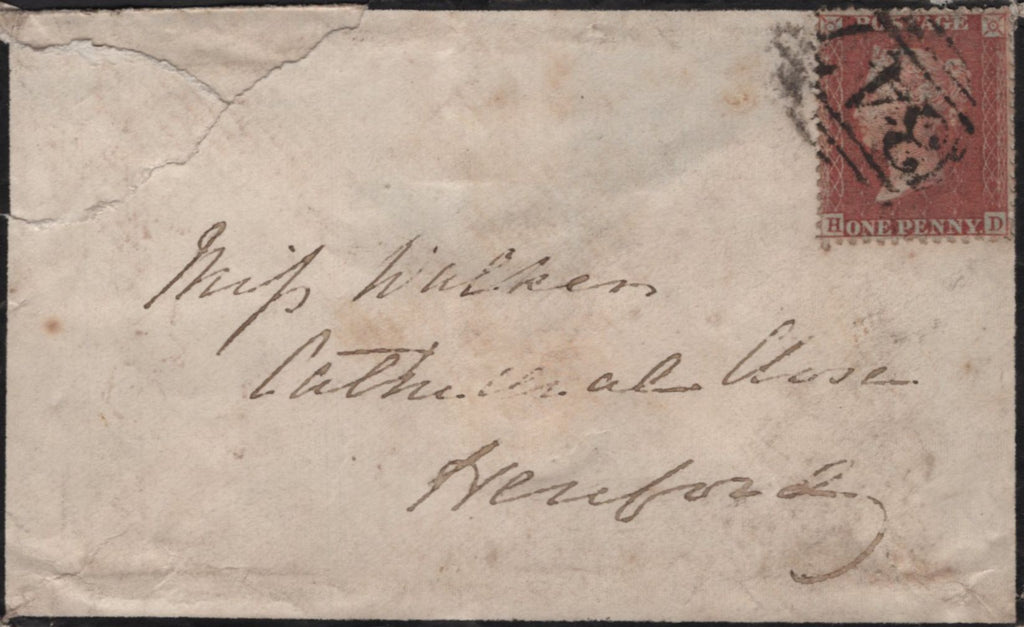 POSTAGE
H ONE PENNY. D
Miss Walker
Cathedral Close
Hereford